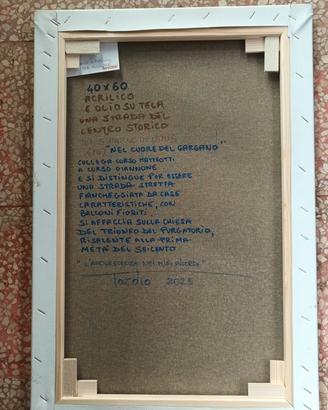 40 x 60
ACRILICO
E OLIO SU TELA
UNA STRADA DEL
CENTRO STORICO
"NEL CUORE DEL GARGANO"
COLLEGA CORSO MATTEOTTI
A CORSO GIANNONE
E SI DISTINGUE PER ESSERE
UNA STRADA STRETTA
FIANCHEGGIATA DA CASE
CARATTERISTICHE, CON
BALCONI FIORITI.
SI AFFACCIA SULLA CHIESA
DEL TRIONFO DEL PURGATORIO,
RISALENTE ALLA PRIMA
METÀ DEL SEICENTO
"L'ADOLESCENZA NEI MIEI RICORDI"
2025